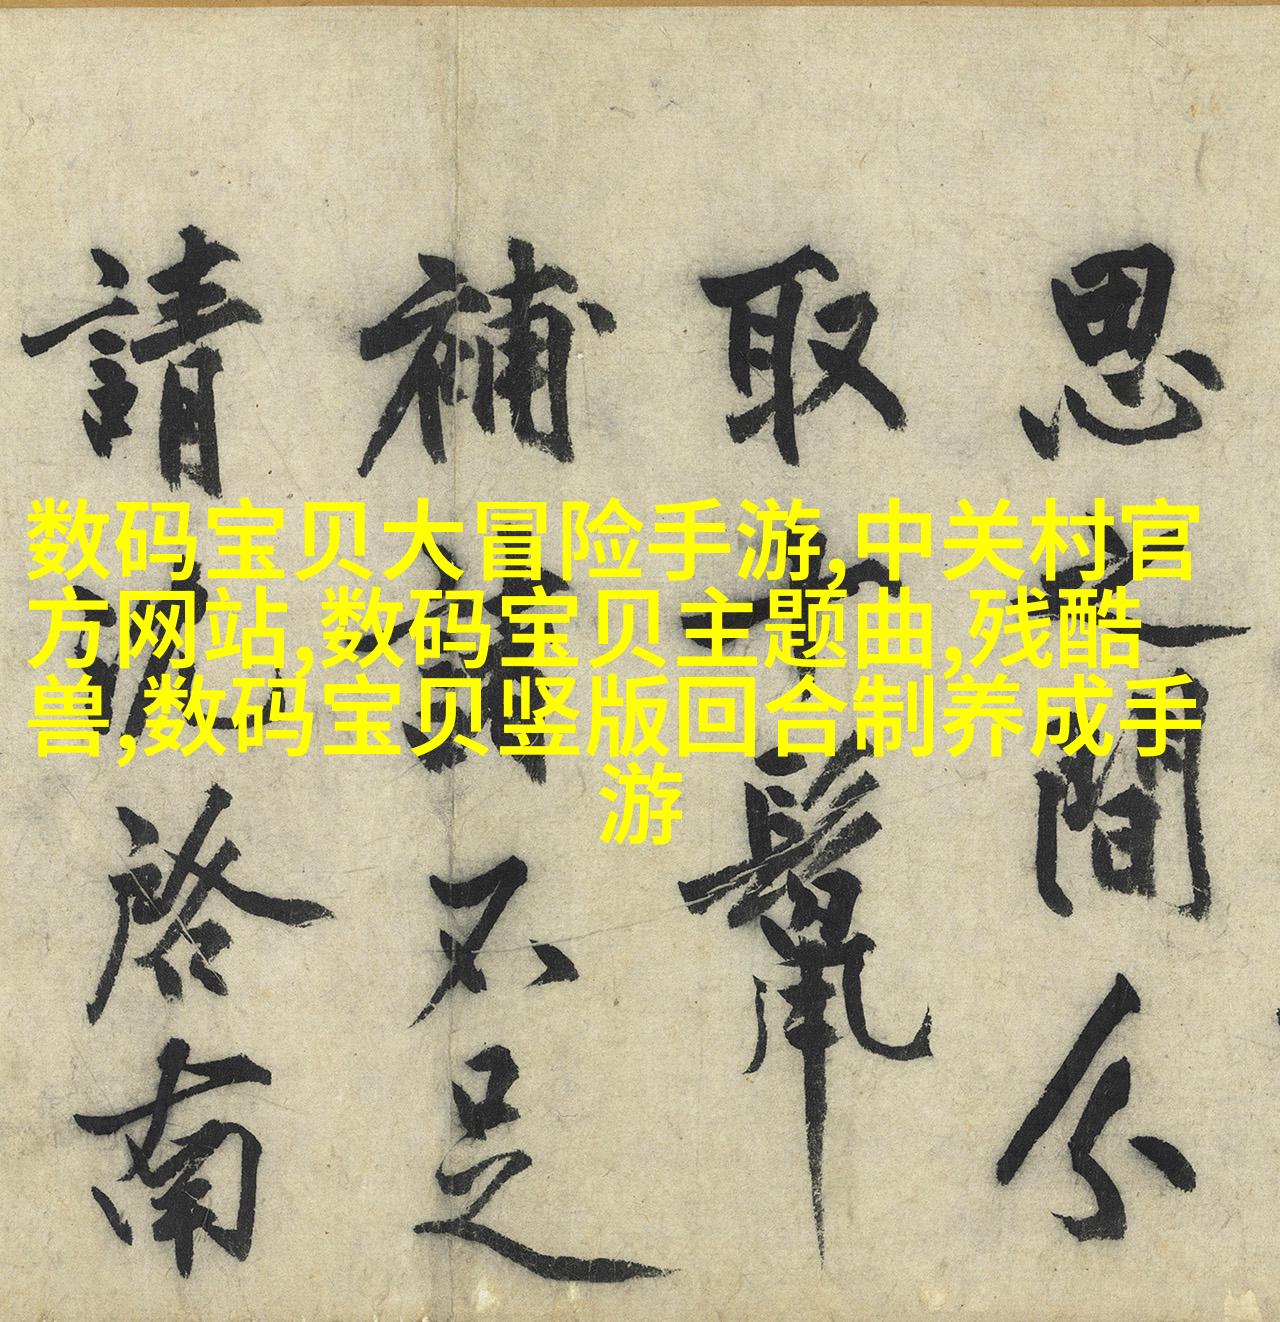 数码宝贝大冒险手游,中关村官
方网站,数码宝贝主题曲,残酷
兽,数码宝贝竖版回合制养成手
游
思間分
取
補不足
請啓南